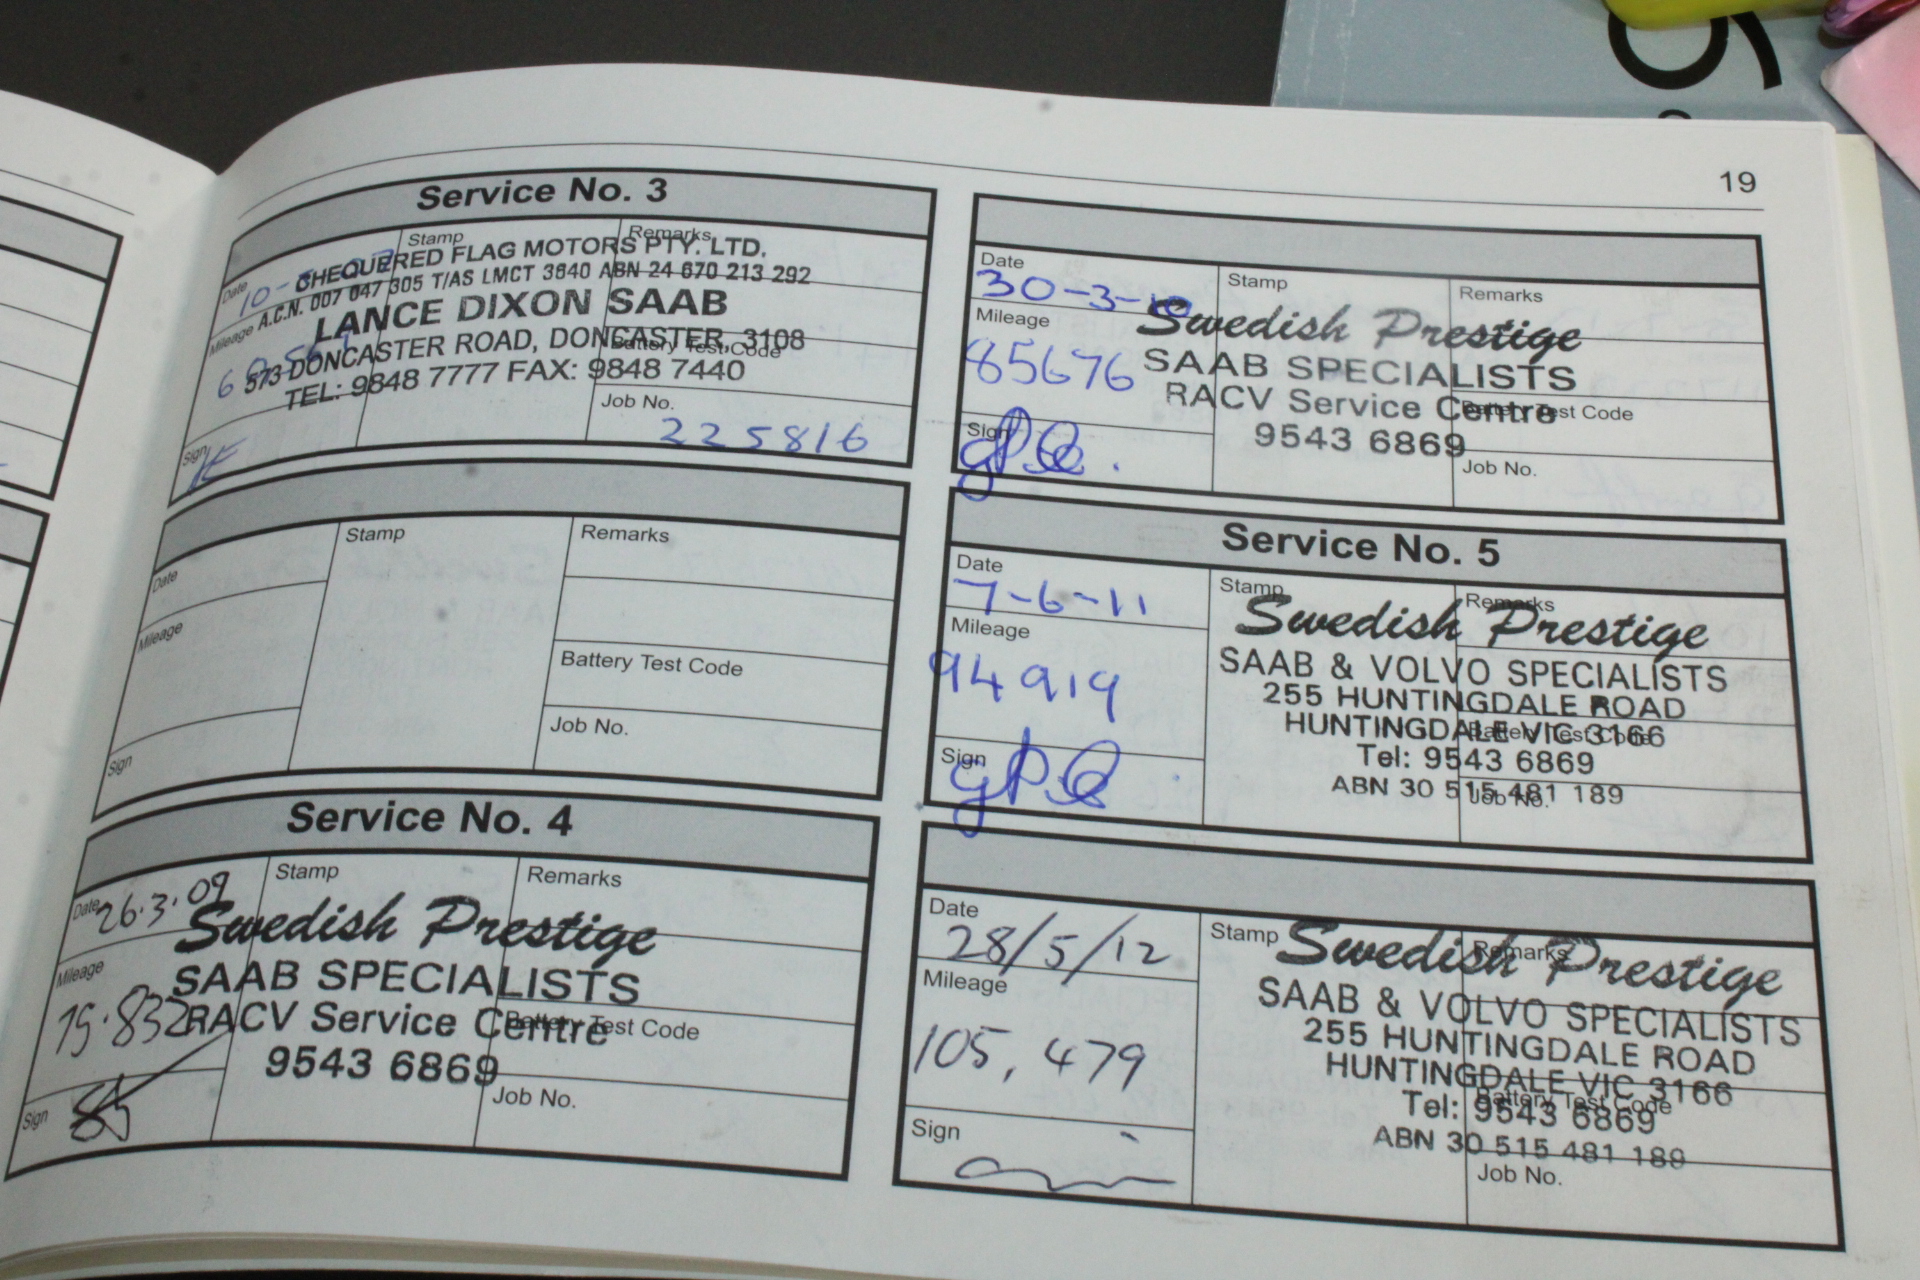 19
Service No. 3
Stamp
Remarks
CHEQUERED FLAG MOTORS PTY. LTD.
Date
10-
A.C.N. 007 047 305 T/AS LMCT 3640 ABN 24 670 213 292
LANCE DIXON SAAB
Mileage
573 DONCASTER ROAD, DONCASTER, 3108
Battery Test Code
TEL: 9848 7777 FAX: 9848 7440
Job No.
225816
Sign
Stamp
Remarks
Date
Mileage
Battery Test Code
Job No.
Sign
Service No. 4
Stamp
Remarks
Date
26.3.09
Swedish Prestige
Mileage
SAAB SPECIALISTS
75.832
RACV Service Centre
Battery Test Code
9543 6869
Job No.
Sign
Date
Stamp
Remarks
30-3-10
Swedish Prestige
Mileage
85676
SAAB SPECIALISTS
RACV Service Centre
Battery Test Code
9543 6869
Sign
Job No.
Service No. 5
Date
Stamp
Remarks
7-6-11
Swedish Prestige
Mileage
SAAB & VOLVO SPECIALISTS
94919
255 HUNTINGDALE ROAD
HUNTINGDALE VIC 3166
Battery Test Code
Tel: 9543 6869
Sign
ABN 30 515 481 189
Job No.
Date
Stamp
Remarks
28/5/12
Swedish Prestige
Mileage
SAAB & VOLVO SPECIALISTS
105,479
255 HUNTINGDALE ROAD
HUNTINGDALE VIC 3166
Battery Test Code
Tel: 9543 6869
Sign
ABN 30 515 481 189
Job No.